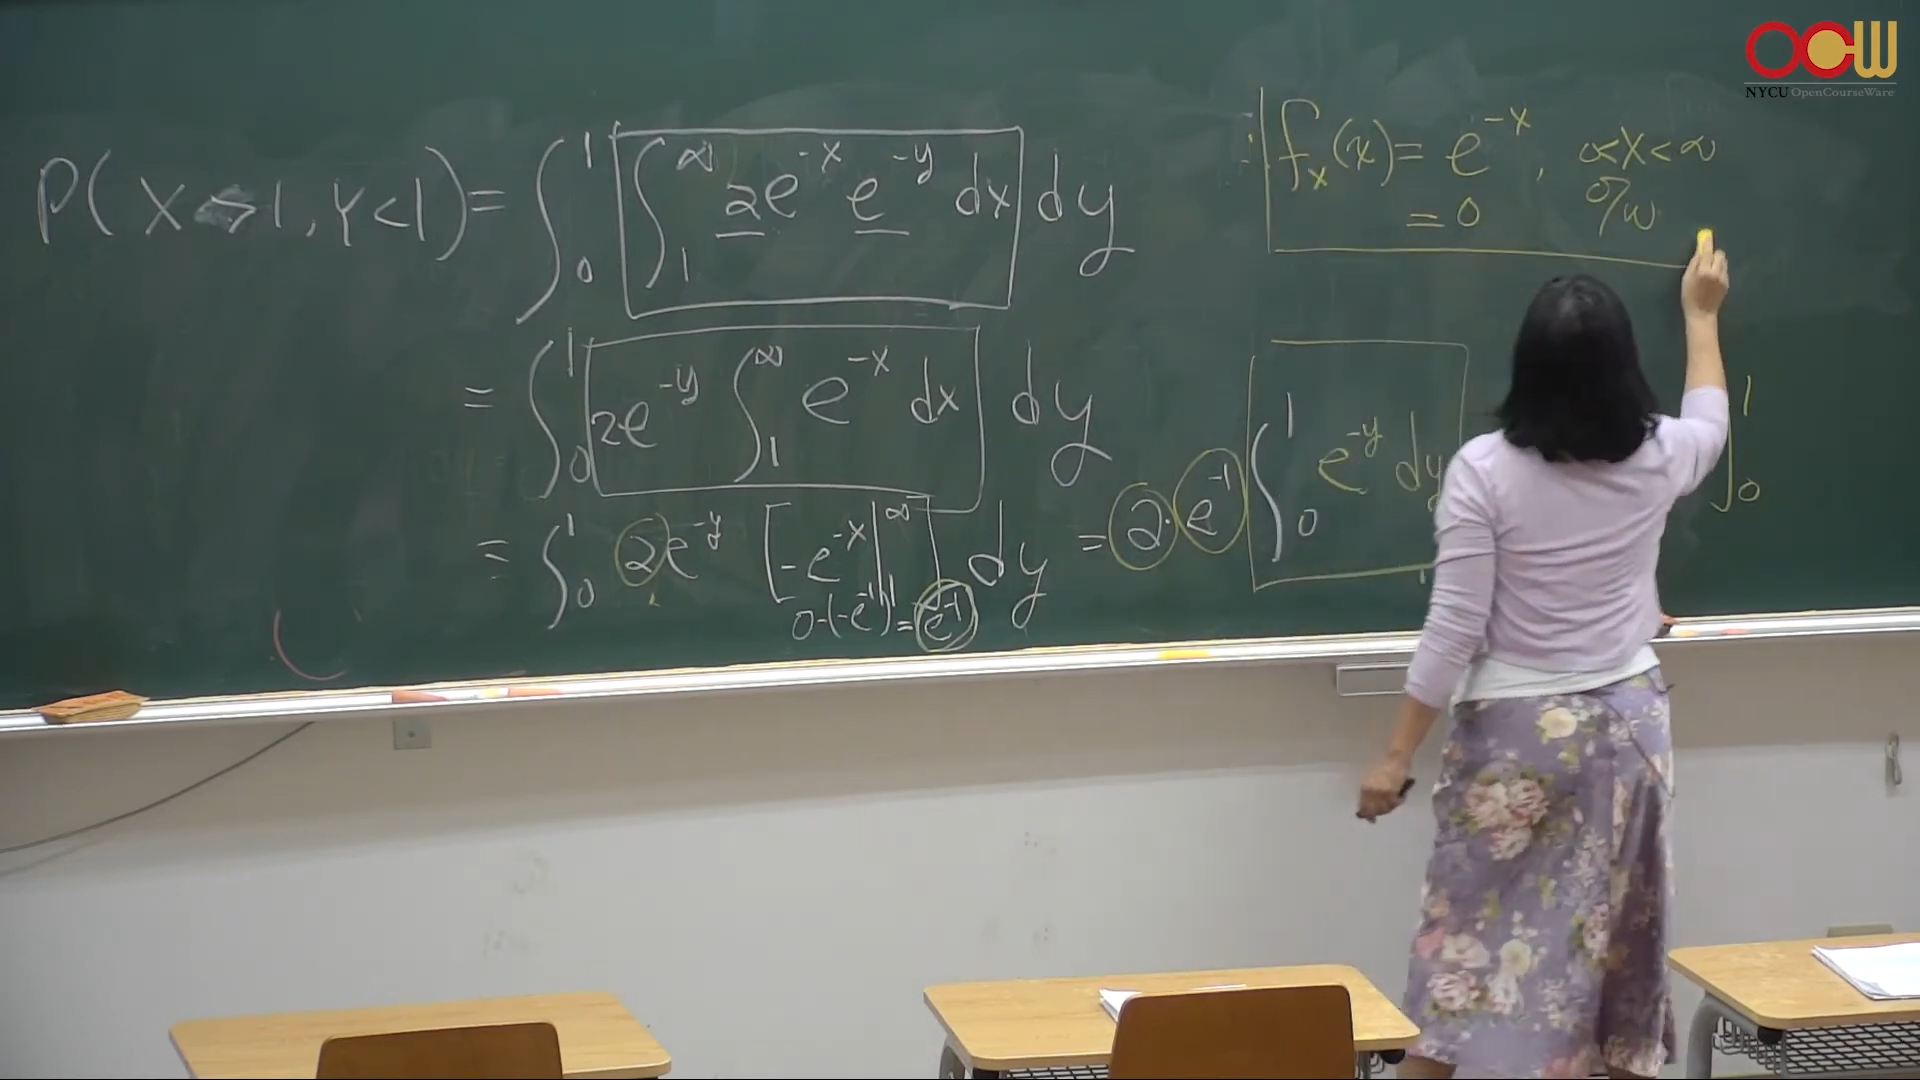 OCW
NYCU OpenCourseWare
P( X > 1, Y < 1 ) = ∫₀¹ ∫₁^∞ 2e^{-x} e^{-y} dx dy
= ∫₀¹ 2e^{-y} ∫₁^∞ e^{-x} dx dy
= ∫₀¹ 2e^{-y} [ -e^{-x} |₁^∞ ] dy = 2 · e^{-1} ∫₀¹ e^{-y} dy ]₀¹
0-(-e^{-1}) = e^{-1}
f_x(x) = e^{-x}, 0<x<∞
= 0 o/w